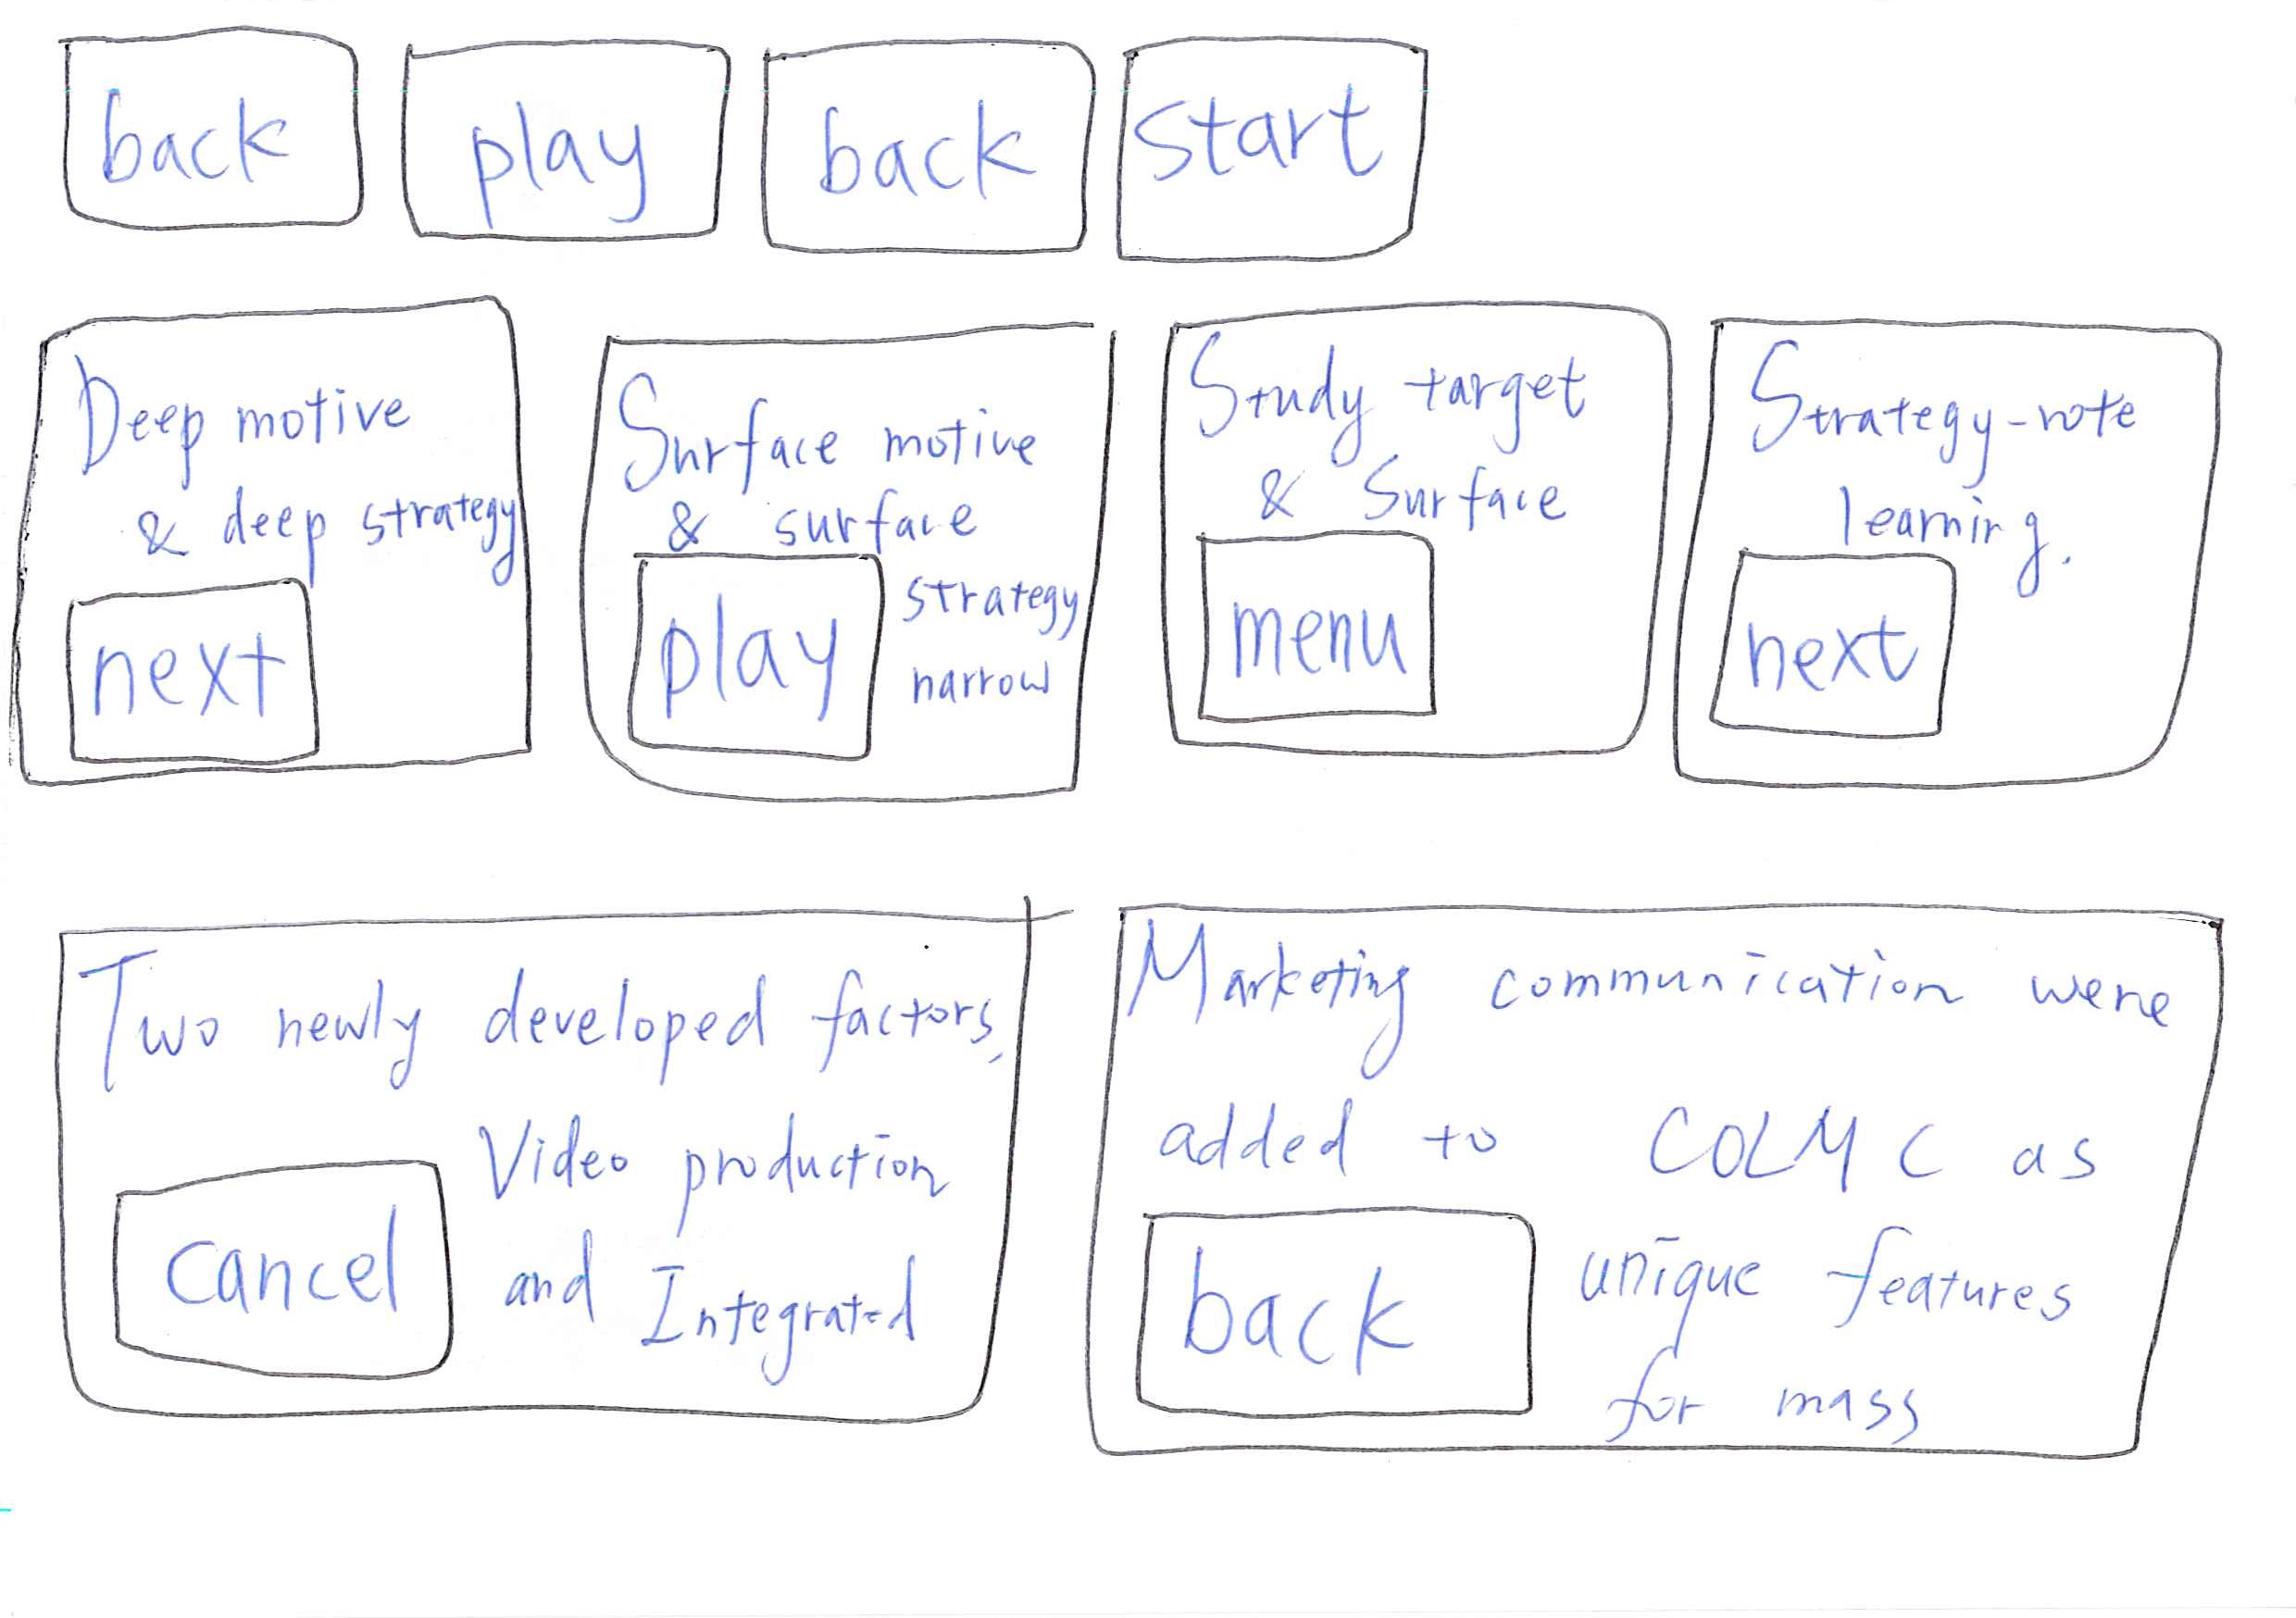 back play back start
Deep motive
& deep strategy
next
Surface motive
& surface
strategy
narrow
play
Study target
& Surface
menu
Strategy-rote
learning.
next
Two newly developed factors,
Video production
and Integrated
cancel
Marketing communication were
added to COLMC as
unique features
for mass
back